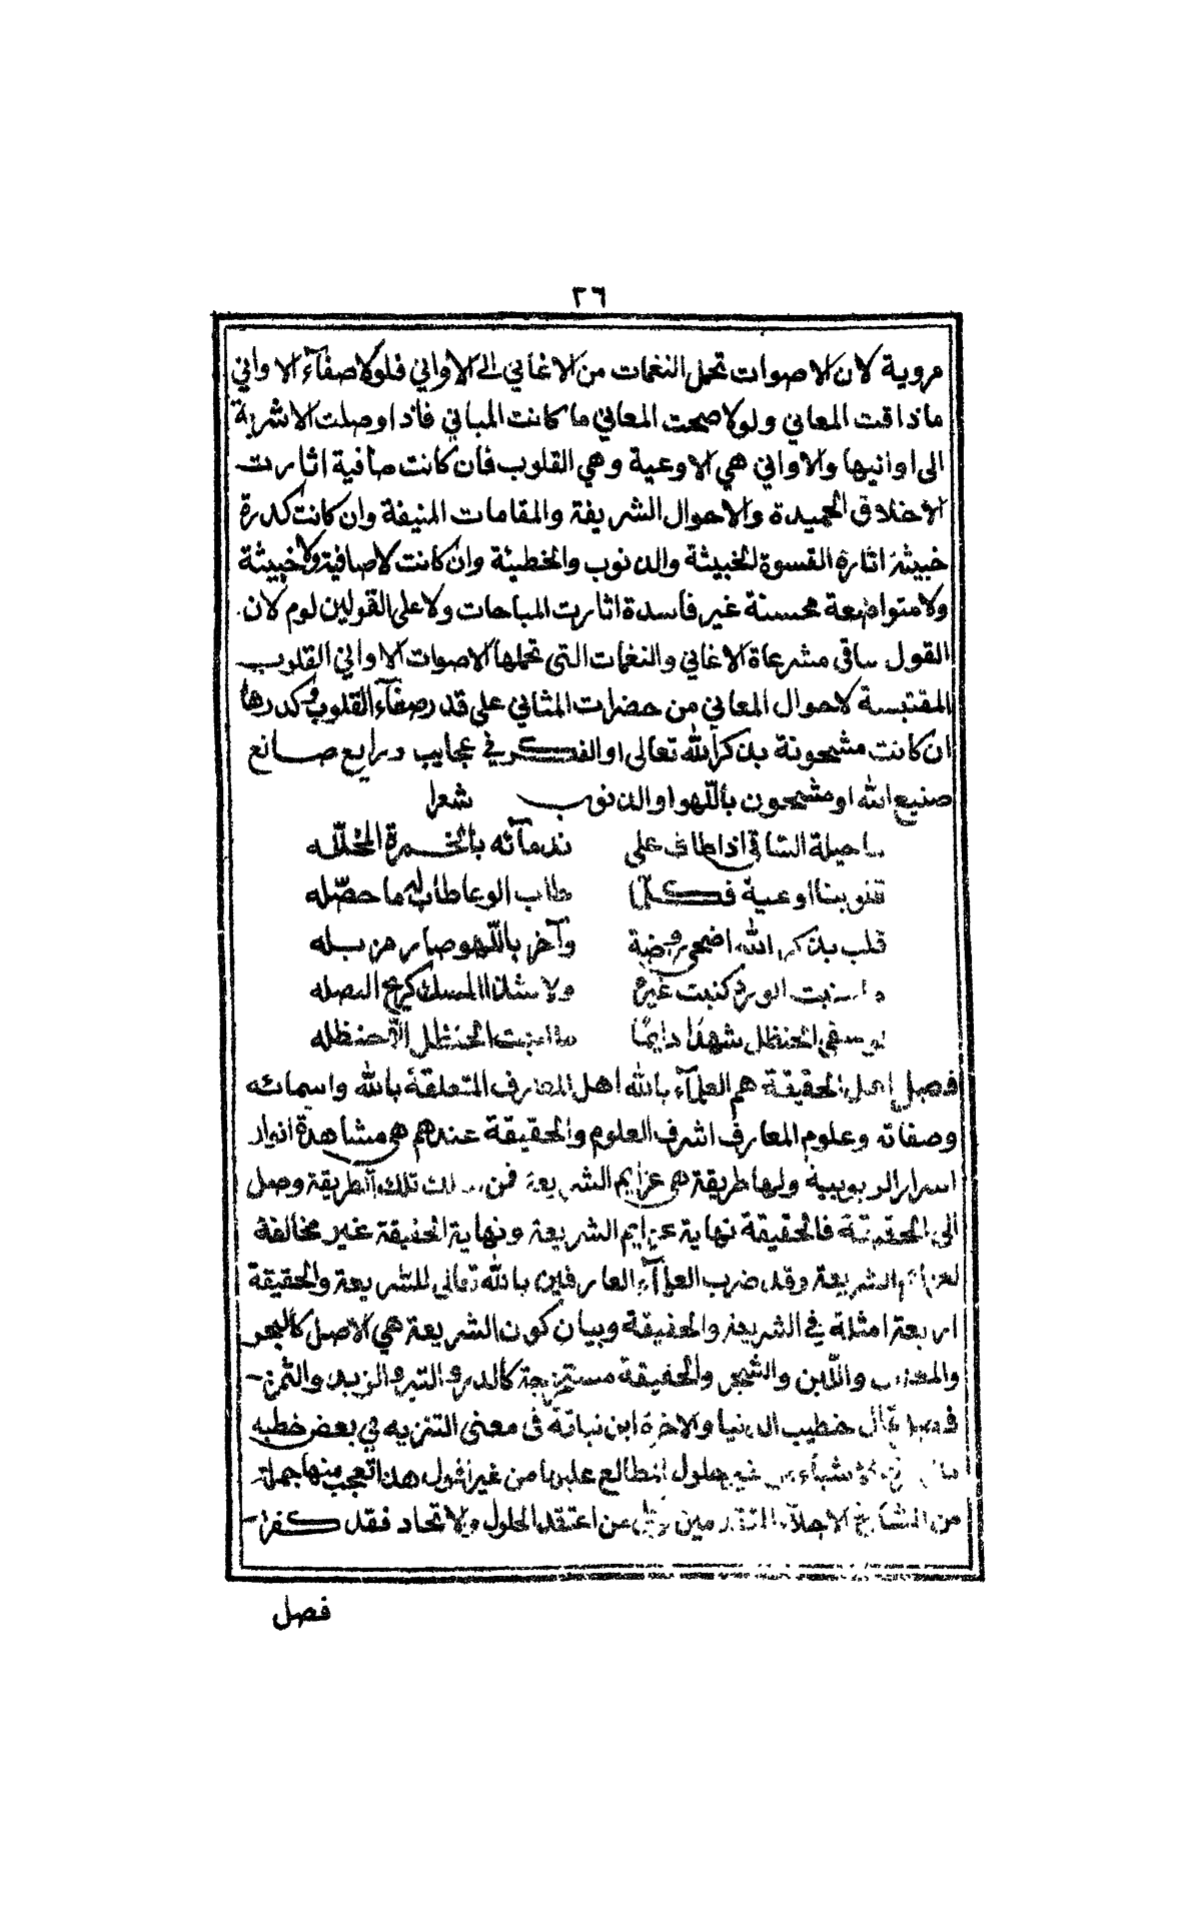 ٢٦
مروية لان الاصوات تحمل النغمات من الاغاني الى الاواني فلولا صفآء الاواني
ماذاقت المعاني ولولا صحت المعاني ما كانت المباني فاذا وصلت الاشربة
الى اوانيها والاواني هي الاوعية وهي القلوب فان كانت صافية اثارت
الاخلاق الحميدة والاحوال الشريفة والمقامات المنيفة وان كانت كدرة
خبيثة اثارة القسوة الخبيثة والذنوب والخطيئة وان كانت لاصافية ولا خبيثة
ولا متواضعة محسنة غير فاسدة اثارت المباحات ولا على القولين لوم لان
القول ساقى مشرعاة الاغاني والنغمات التى تحملها الاصوات الاواني القلوب
المقتبسة لاحوال المعاني من حضرات المثاني على قدر صفآء القلوب وكدرها
ان كانت مشحونة بذكر الله تعالى او الفكر في عجايب صانع
صنيع الله او مشحون باللهو او الذنوب شعرا
ما حيلة الساقي اذا طاف على ندمآئه بالخمرة المخلله
قلوبنا اوعية فكلما طاب الوعا طاب لهم ما حصّله
قلب بذكر الله اضحى روضة وآخر باللهو صار مزبله
ما منبت الورد كنبت غيره ولا شذا المسك كريح البصله
لو سقى الحنظل شهدا دايمًا ما انبت الحنظل الّا حنظله
فصل اهل الحقيقة هم العلمآء بالله اهل المعارف المتعلقة بالله واسمائه
وصفاته وعلوم المعارف اشرف العلوم والحقيقة عندهم هى مشاهدة انوار
اسرار الربوبية ولها طريقة هى عزايم الشريعة فمن سلك تلك الطريقة وصل
الى الحقيقة فالحقيقة نهاية عزايم الشريعة ونهاية الحقيقة غير مخالفة
لعزايم الشريعة وقد ضرب العلمآء العارفين بالله تعالى للشريعة والحقيقة
اربعة امثلة في الشريعة والحقيقة وبيان كون الشريعة هي الاصل كالبحر
والمعدن واللبن والشجر والحقيقة مستخرجة كالدر والتبر والزبد والثمر
فصل قال خطيب الدنيا والاخرة ابن نباتة فى معنى التنزيه في بعض خطبه
الاشياء من غير حلول المطالع عليها من غير افول هذا تعجب منها جملة
من المشايخ الاجلآء المتقدمين وقيل من اعتقد الحلول والاتحاد فقد كفر
فصل